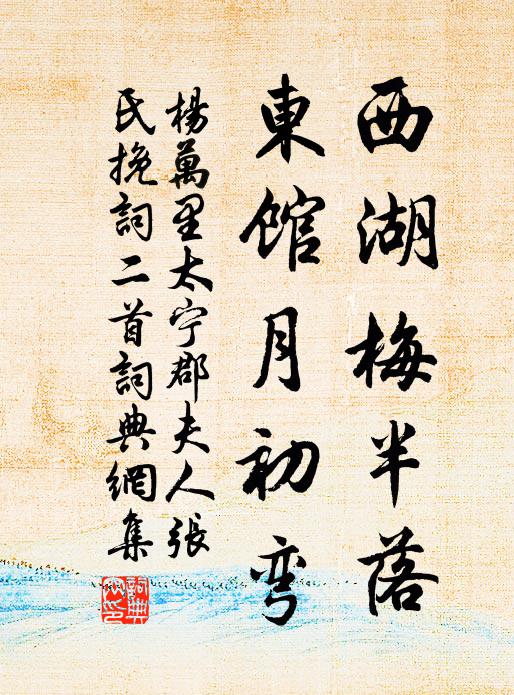 西湖梅半落
東館月初彎
楊萬里太宁郡夫人張
氏挽詞二首詞典網集